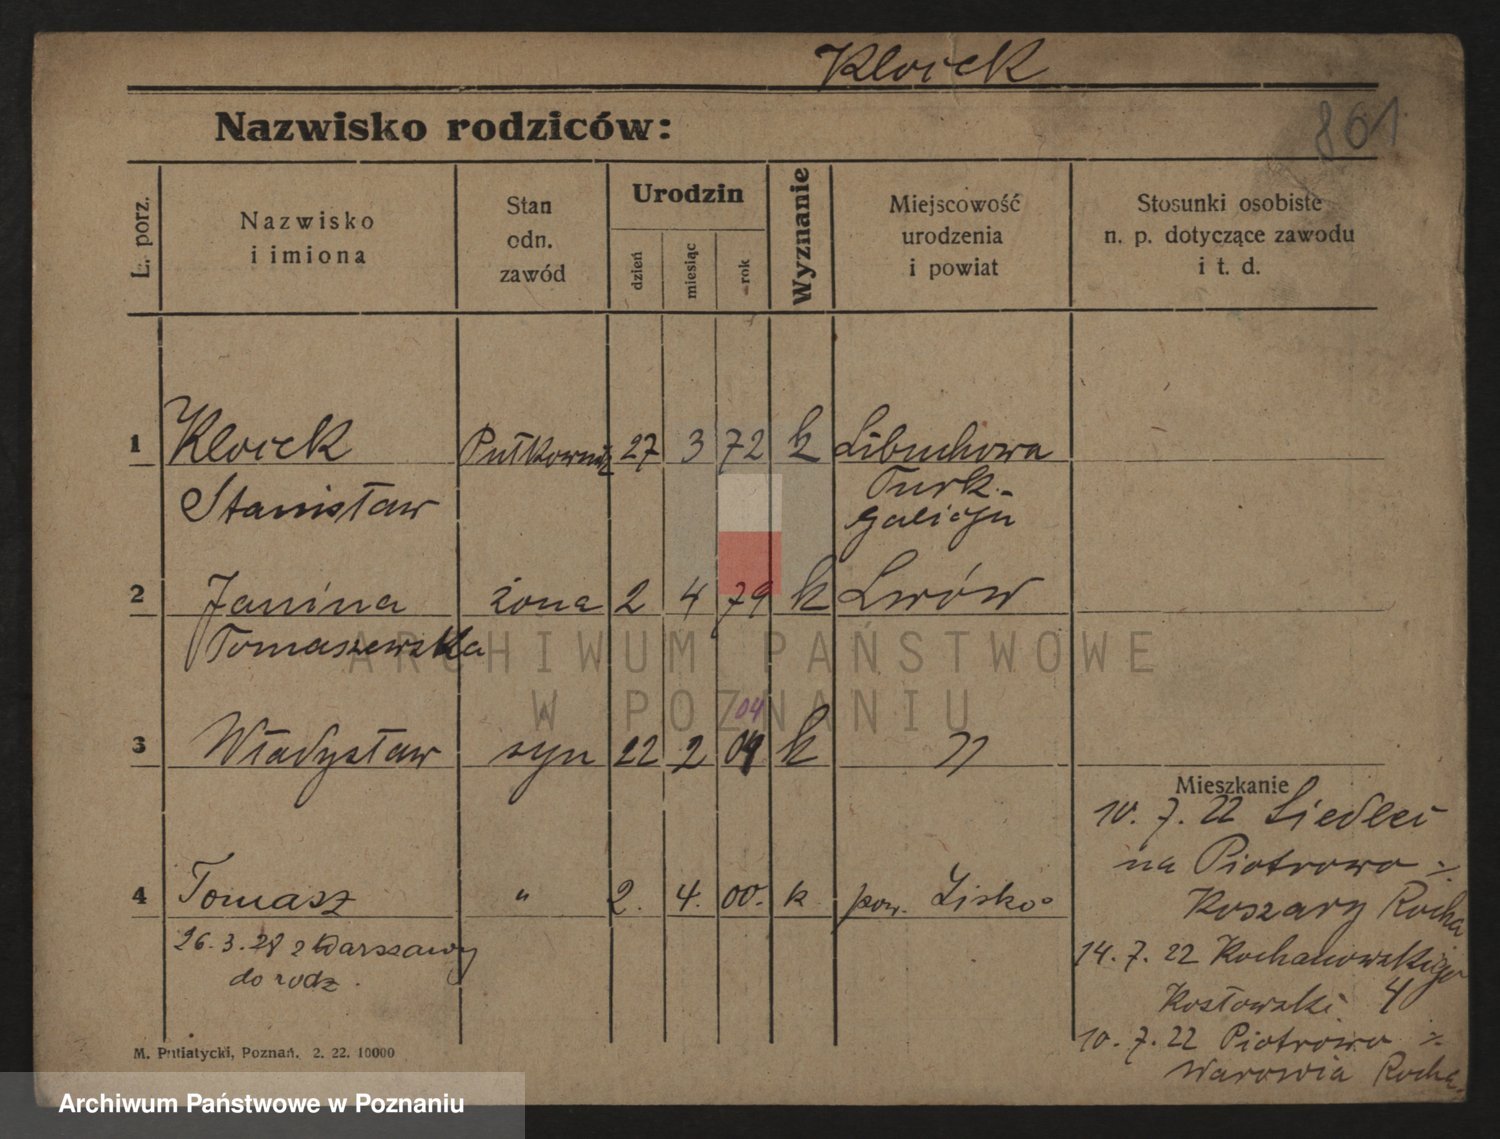 Kloick
Nazwisko rodziców:
861
L. porz.
Nazwisko
i imiona
Stan
odn.
zawód
Urodzin
dzień
miesiąc
rok
Wyznanie
Miejscowość
urodzenia
i powiat
Stosunki osobiste
n. p. dotyczące zawodu
i t. d.
1 Kloick Pułkownik 27 3 72 k Libuchowa
Stanisław Turk-
Galicja
2 Janina żona 2 4 79 k Lwów
Tomaszewska
04
3 Władysław syn 22 2 04 k "
Mieszkanie
10. 7. 22 Siedlei
na Piotrowo ·/.
Koszary Rocha
4 Tomasz " 2. 4. 00. k pow. Lisko
26. 3. 28 z Warszawy
do rodz.
14. 7. 22 Kochanowskiego
Kosłowski 4
10. 7. 22 Piotrowo ·/.
Warownia Rocha
M. Putiatycki, Poznań. 2. 22. 10000
ARCHIWUM PAŃSTWOWE
W POZNANIU
Archiwum Państwowe w Poznaniu